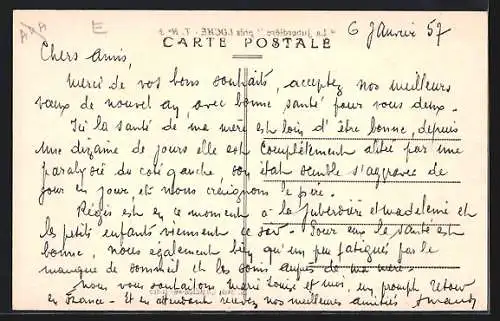 6 Janvier 57
CARTE POSTALE
Chers Amis,
Merci de vos bons souhaits, acceptez nos meilleurs
vœux de nouvel an, avec bonne santé pour vous deux.
Ici la santé de ma mère est loin d'être bonne, depuis
une dizaine de jours elle est complètement alitée par une
paralysie du coté gauche, son état semble s'aggraver de
jour en jour, et nous craignons le pire.
Régis est en ce moment à la Juberdière et Madeleine et
les petits enfants viennent ce soir. Pour eux la santé est
bonne, nous également bien qu'un peu fatigués par le
manque de sommeil et les soins auprès de ma mère.
Nous vous souhaitons, Marie Louise et moi, un prompt retour
en France. Et en attendant recevez nos meilleures amitiés Amand